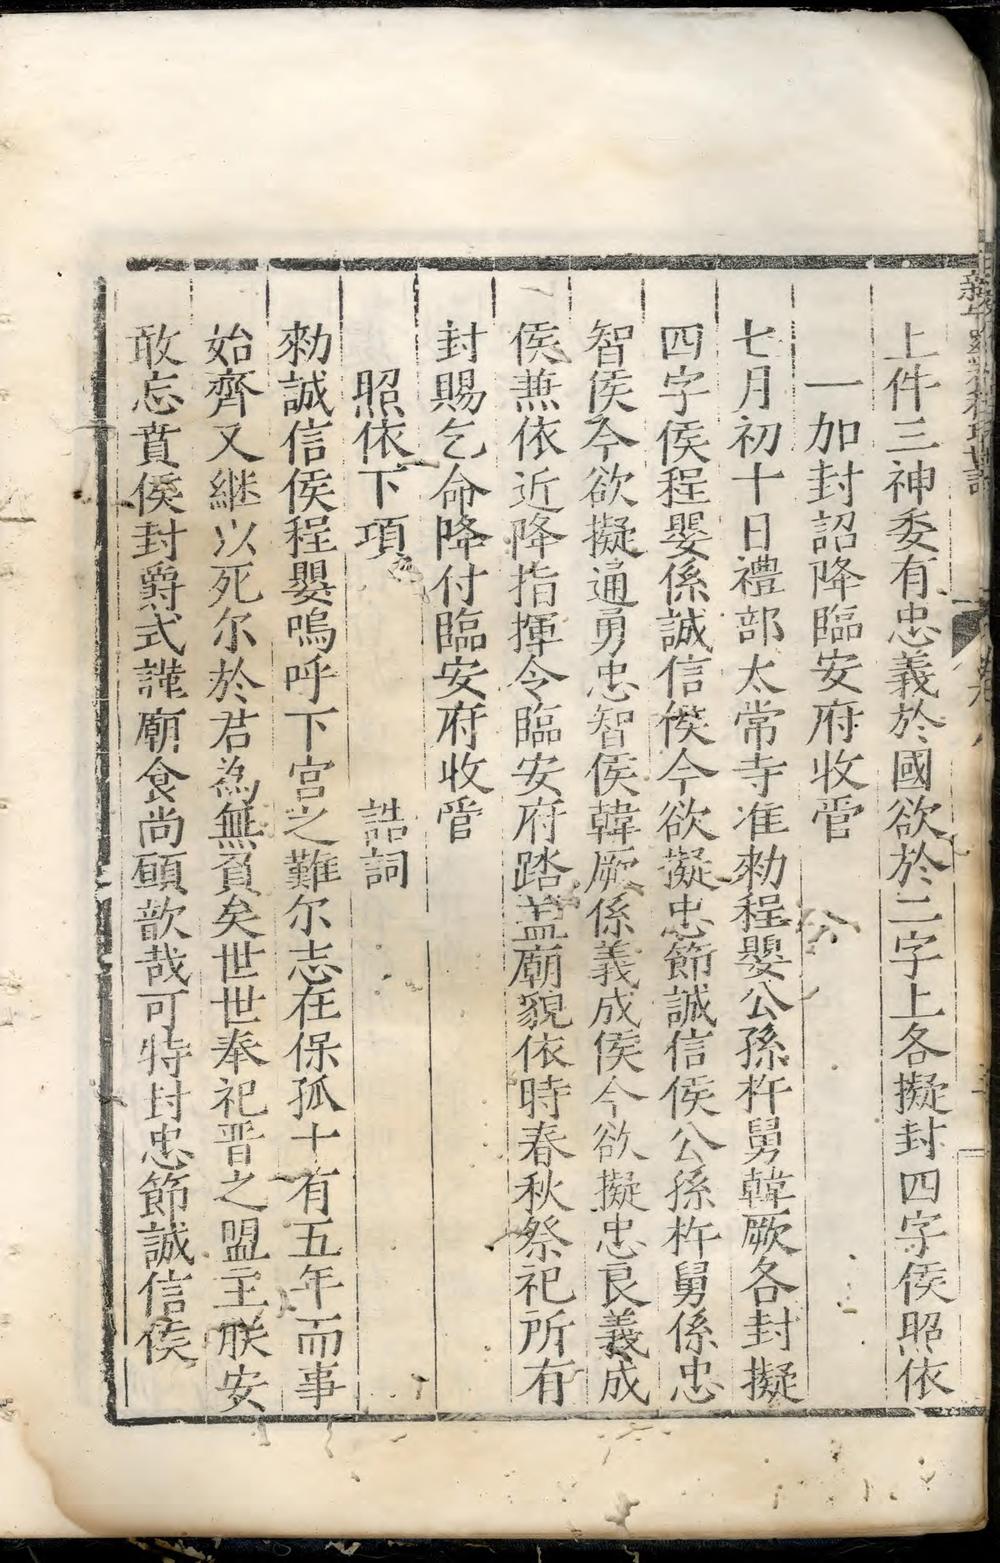 上件三神委有忠義於國欲於二字上各擬封四字侯照依
一加封詔降臨安府收管
七月初十日禮部太常寺准勑程嬰公孫杵臼韓厥各封擬
四字侯程嬰係誠信侯今欲擬忠節誠信侯公孫杵臼係忠
智侯今欲擬通勇忠智侯韓厥係義成侯今欲擬忠良義成
侯兼依近降指揮令臨安府踏盖廟貌依時春秋祭祀所有
封賜乞命降付臨安府收管
照依下項　誥詞
勑誠信侯程嬰嗚呼下宮之難尔志在保孤十有五年而事
始齊又継以死尔於君為無負矣世世奉祀晋之盟主朕安
敢忘賁侯封爵式謹廟食尚頋歆哉可特封忠節誠信侯